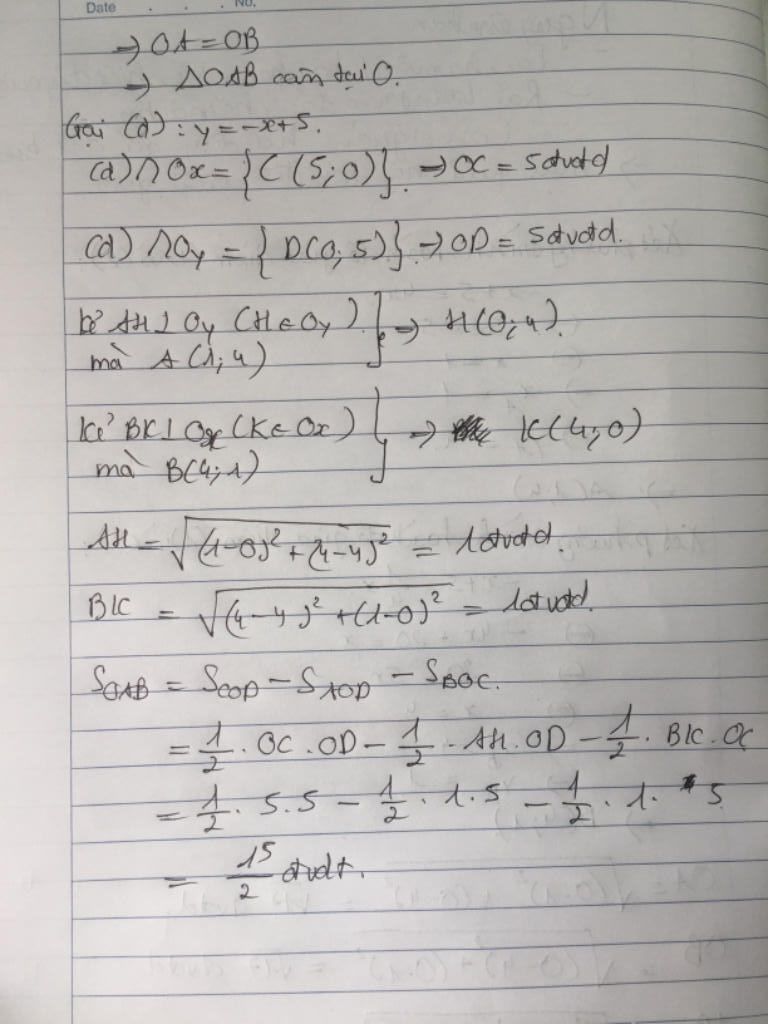 Date No.
⇒ OA = OB
⇒ ΔOAB cân tại O.
Gọi (d) : y = -x+5.
(d) ∩ Ox = {C(5;0)}. ⇒ OC = 5đvđd
(d) ∩ Oy = {D(0;5)} ⇒ OD = 5đvđd.
kẻ AH ⊥ Oy (H ∈ Oy) } ⇒ H(0;4).
mà A(1;4)
Kẻ BK ⊥ Ox (K ∈ Ox) } ⇒ K(4;0)
mà B(4;1)
AH = √((1-0)² + (4-4)²) = 1đvđd.
BK = √((4-4)² + (1-0)²) = 1đvđd.
S_OAB = S_COD - S_AOD - S_BOC.
= 1/2 . OC . OD - 1/2 . AH . OD - 1/2 . BK . OC
= 1/2 . 5.5 - 1/2 . 1.5 - 1/2 . 1. 5
= 15/2 đvdt.